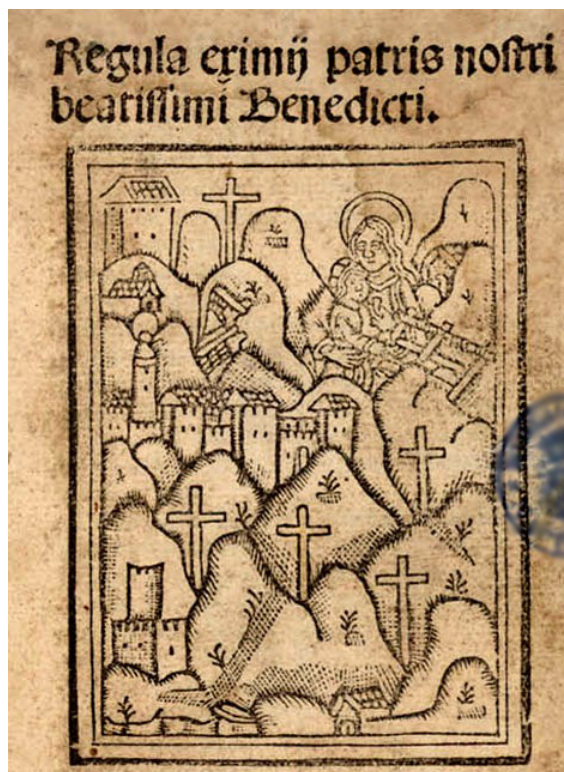 Regula eximij patris nostri
beatissimi Benedicti.